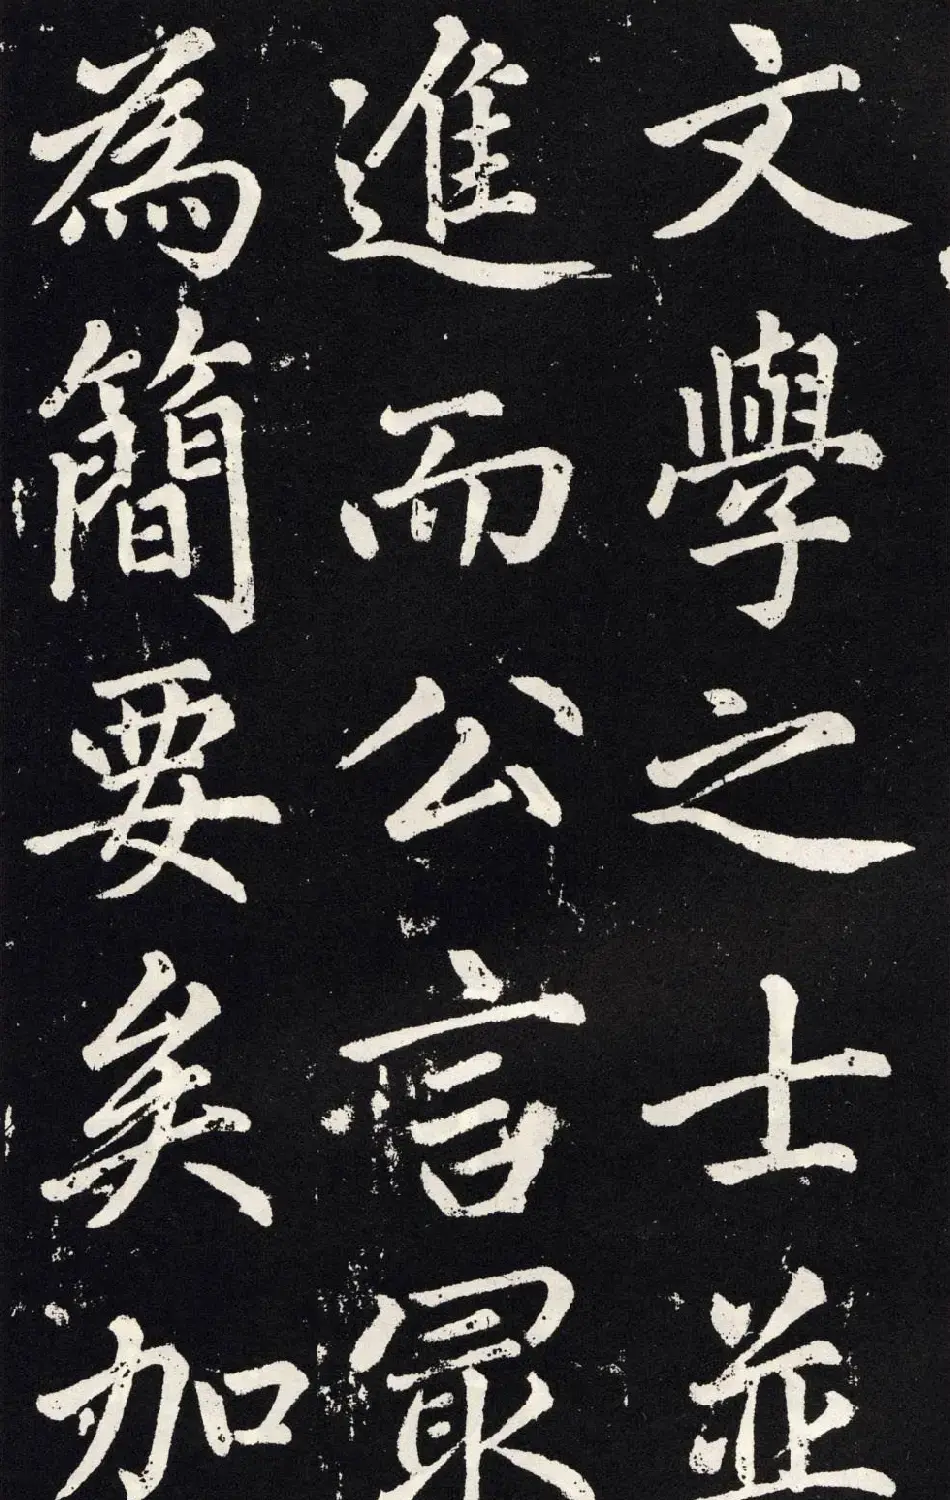 文學之士並
進而公言冣
為簡要矣加